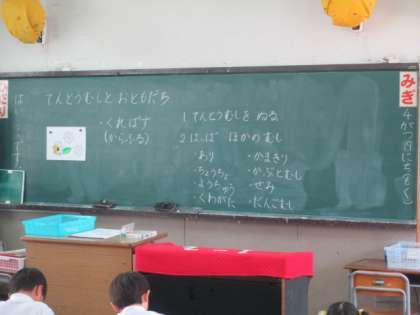 てんとうむしと おともだち
・くれぱす
(からふる)
1.てんとうむしを ぬる
2.はっぱ ほかのむし
・あり
・ちょうちょ
・ようちゅう
・くわがた
・かまきり
・かぶとむし
・せみ
・だんごむし
みぎ
ひだり